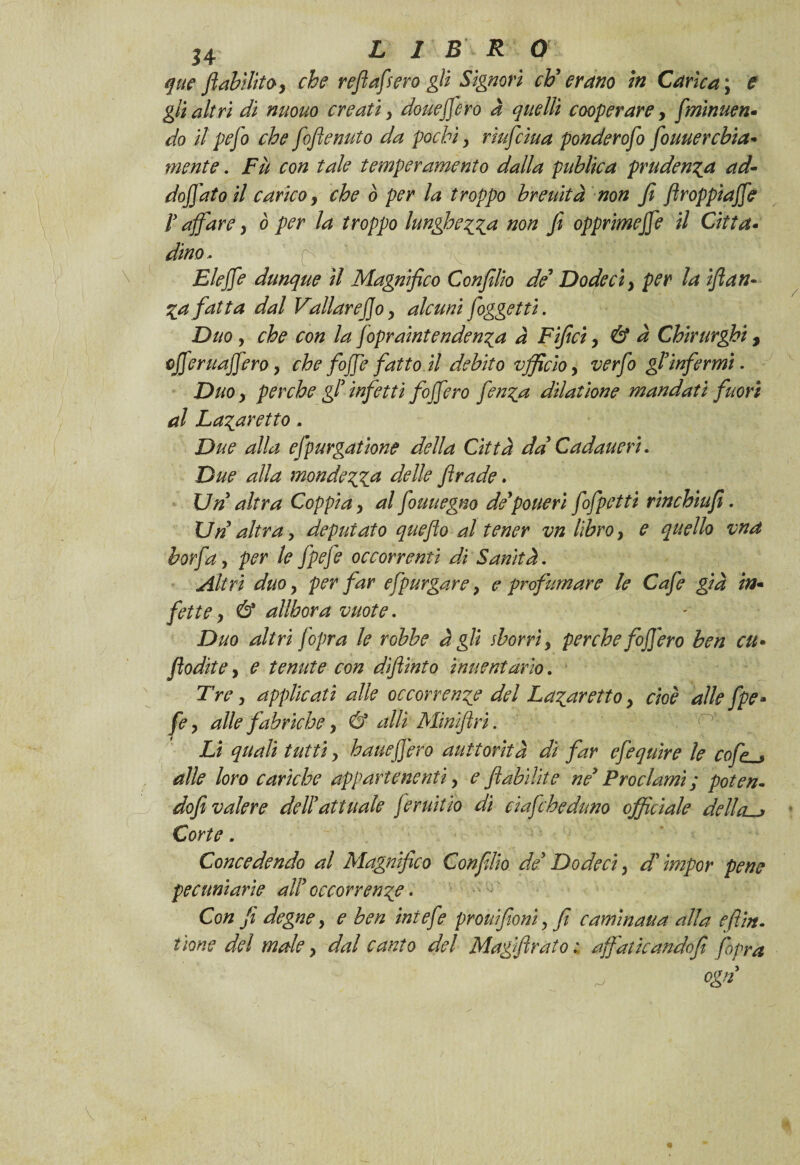 34 LIBRO
que ſtabilito, che reſtaſsero gli Signori ch' erano in Carica; e
gli altri di nuouo creati, doueſſero à quelli cooperare, ſminuen-
do il peſo che ſoſtenuto da pochi, riuſciua ponderoſo ſouuerchia-
mente. Fù con tale temperamento dalla publica prudenza ad-
doſſato il carico, che ò per la troppo breuità non ſi ſtroppiaſſe
l' affare, ò per la troppo lunghezza non ſi opprimeſſe il Citta-
dino.
Eleſſe dunque il Magnifico Conſilio de' Dodeci, per la iſtan-
za fatta dal Vallareſſo, alcuni ſoggetti.
Duo, che con la ſopraintendenza à Fiſici, & à Chirurghi,
oſſeruaſſero, che foſſe fatto il debito vfficio, verſo gl'infermi.
Duo, perche gl' infetti foſſero ſenza dilatione mandati fuori
al Lazaretto.
Due alla eſpurgatione della Città da' Cadaueri.
Due alla mondezza delle ſtrade.
Un' altra Coppia, al ſouuegno de'poueri ſoſpetti rinchiuſi.
Un' altra, deputato queſto al tener vn libro, e quello vna
borſa, per le ſpeſe occorrenti di Sanità.
Altri duo, per far eſpurgare, e profumare le Caſe già in-
fette, & allhora vuote.
Duo altri ſopra le robbe à gli sborri, perche foſſero ben cu-
ſtodite, e tenute con diſtinto inuentario.
Tre, applicati alle occorrenze del Lazaretto, cioè alle ſpe-
ſe, alle fabriche, & alli Miniſtri.
Li quali tutti, haueſſero auttorità di far eſequire le coſe
alle loro cariche appartenenti, e ſtabilite ne' Proclami; poten-
doſi valere dell'attuale ſeruitio di ciaſcheduno officiale della
Corte.
Concedendo al Magnifico Conſilio de' Dodeci, d' impor pene
pecuniarie all' occorrenze.
Con ſi degne, e ben inteſe prouiſioni, ſi caminaua alla eſtin-
tione del male, dal canto del Magiſtrato: affaticandoſi ſopra
ogn'